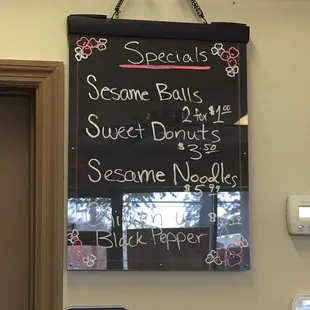 Specials
Sesame Balls
2 for $1.00
Sweet Donuts
$3.50
Sesame Noodles
$5.99
Black Pepper